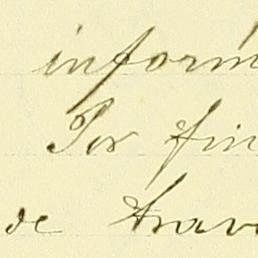 inform
Por fin
de trav